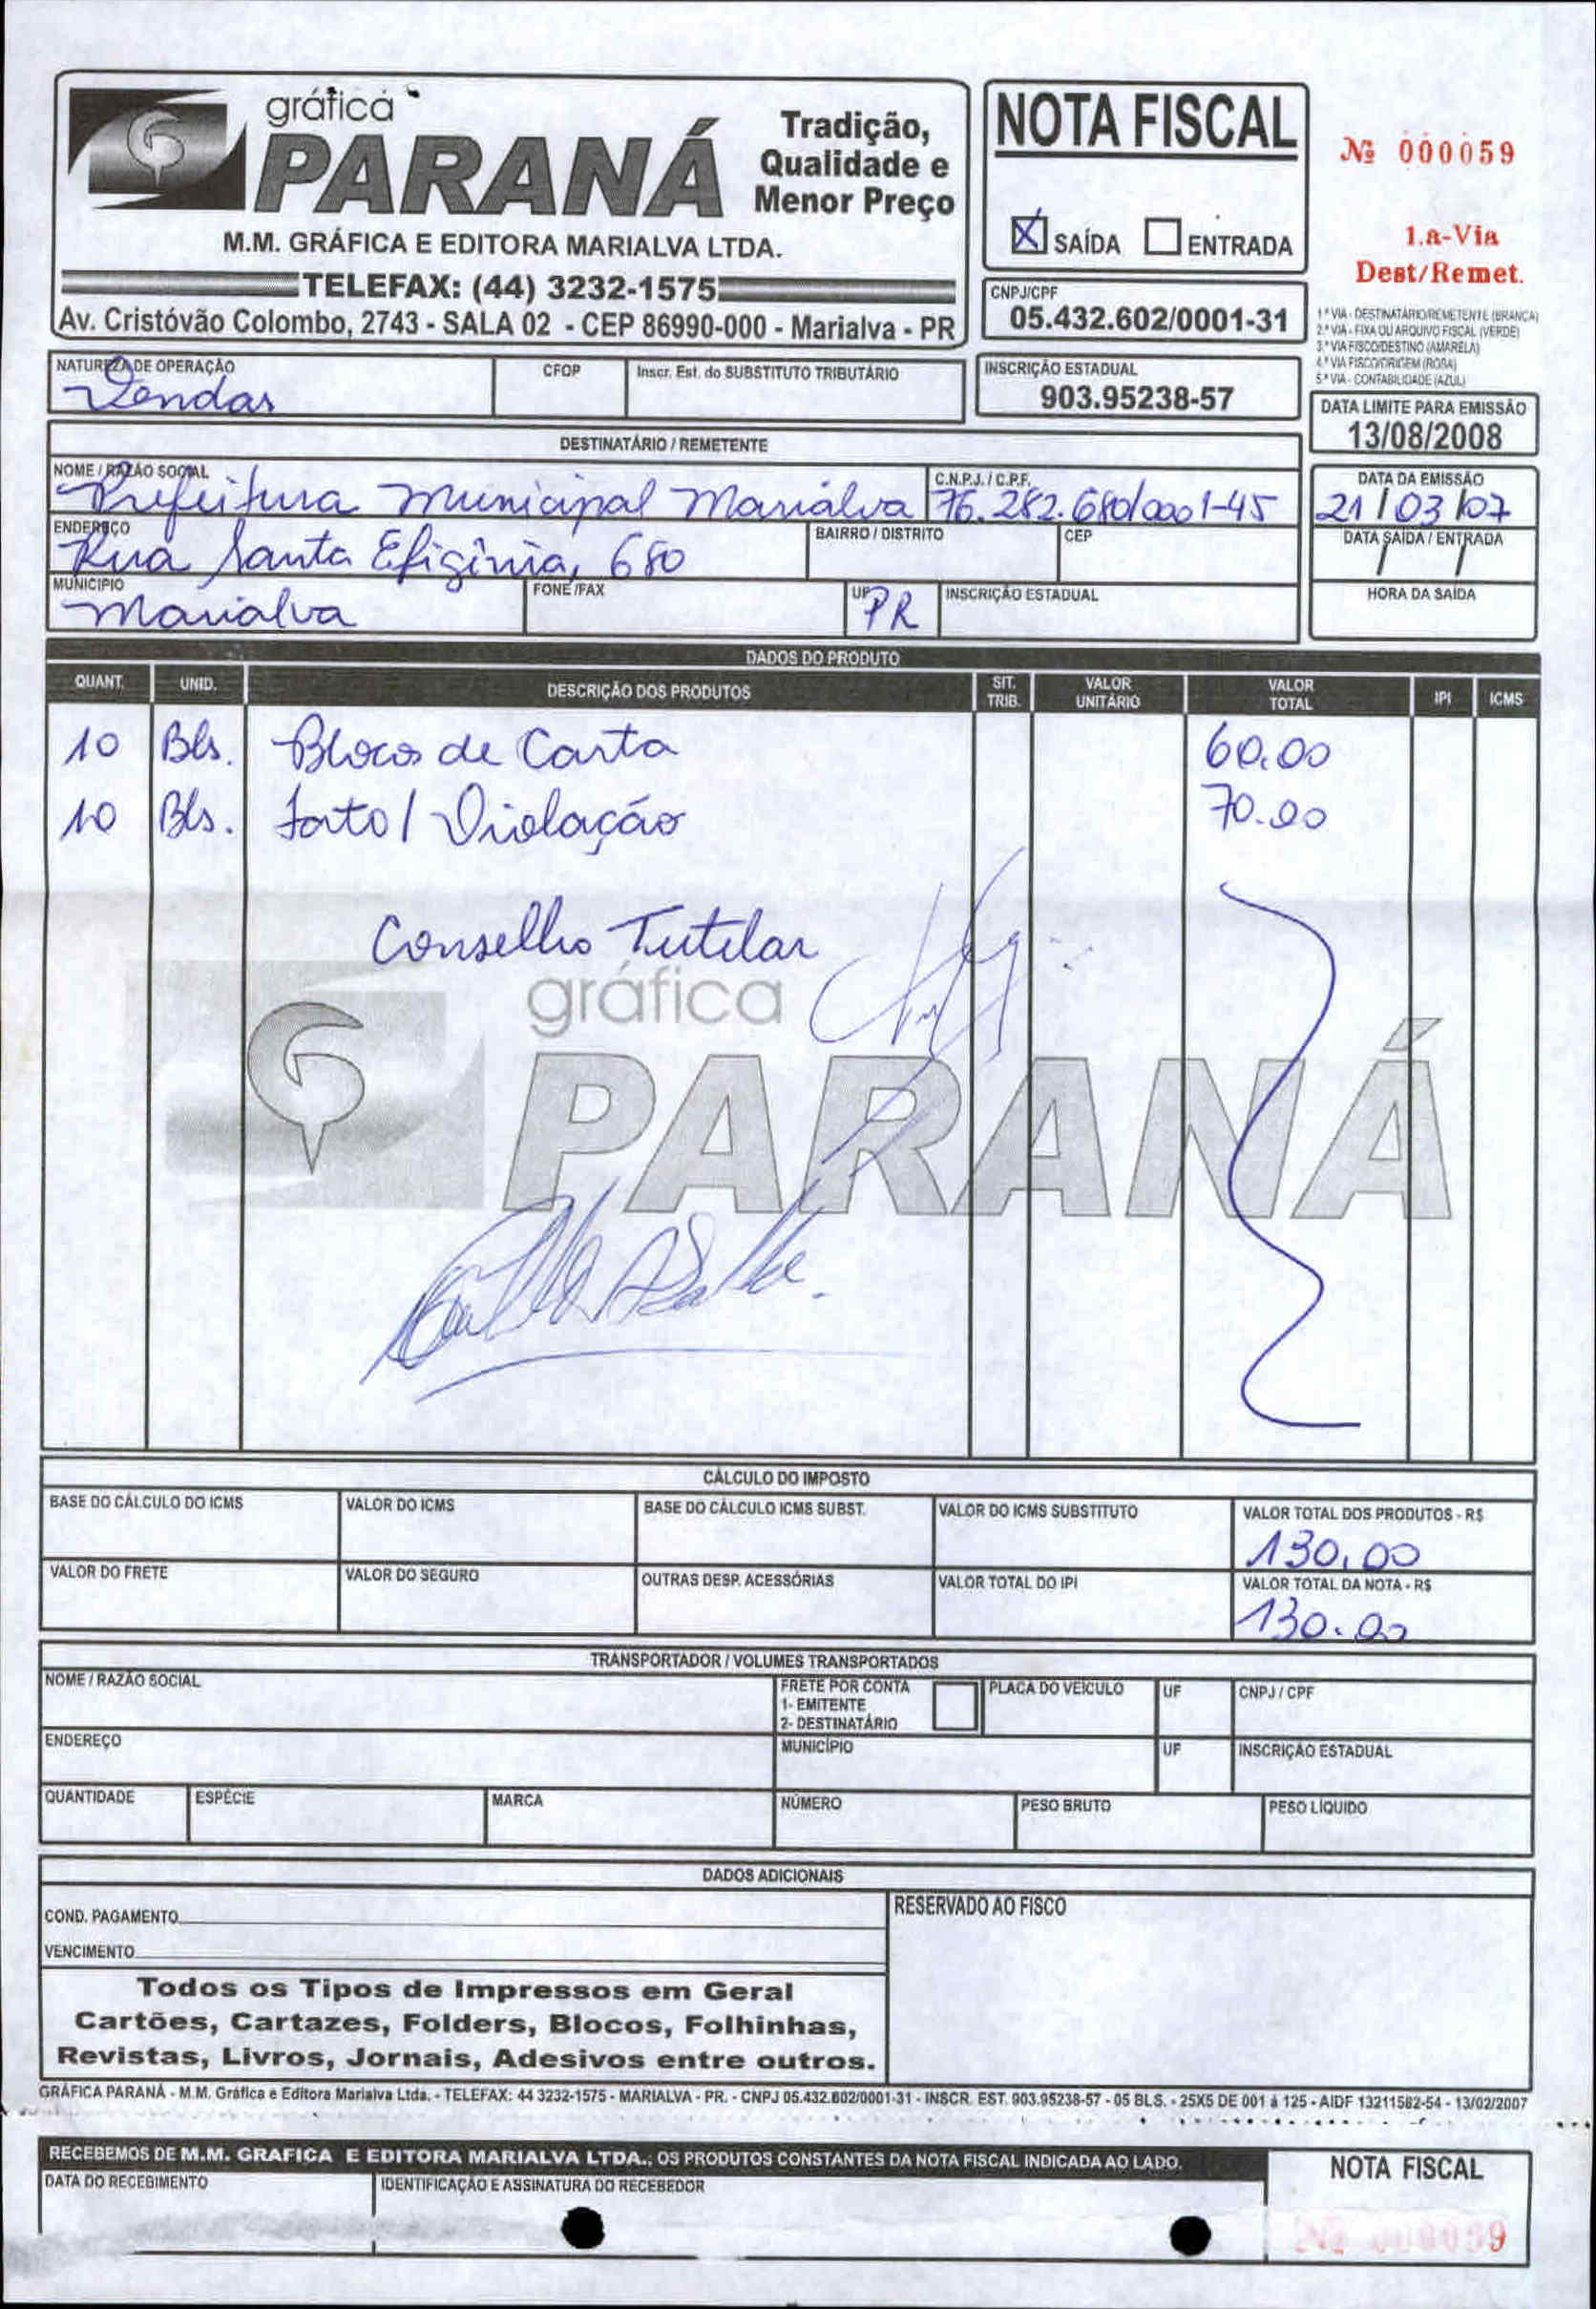 gráfica
PARANÁ
Tradição,
Qualidade e
Menor Preço
M.M. GRÁFICA E EDITORA MARIALVA LTDA.
TELEFAX: (44) 3232-1575
Av. Cristóvão Colombo, 2743 - SALA 02 - CEP 86990-000 - Marialva - PR
NOTA FISCAL
X SAÍDA ENTRADA
Nº 000059
1.a-Via
Dest/Remet.
CNPJ/CPF
05.432.602/0001-31
1ª VIA - DESTINATÁRIO/REMETENTE (BRANCA)
2ª VIA - FIXA OU ARQUIVO FISCAL (VERDE)
3ª VIA FISCO/DESTINO (AMARELA)
4ª VIA FISCO/ORIGEM (ROSA)
5ª VIA - CONTABILIDADE (AZUL)
NATUREZA DE OPERAÇÃO CFOP Inscr. Est. do SUBSTITUTO TRIBUTÁRIO
Vendas
INSCRIÇÃO ESTADUAL
903.95238-57
DATA LIMITE PARA EMISSÃO
13/08/2008
DESTINATÁRIO / REMETENTE
NOME / RAZÃO SOCIAL C.N.P.J. / C.P.F.
Prefeitura Municipal Marialva 76.282.680/0001-45
DATA DA EMISSÃO
21/03/07
ENDEREÇO BAIRRO / DISTRITO CEP
Rua Santa Efigênia, 680
DATA SAÍDA / ENTRADA
/ /
MUNICÍPIO FONE /FAX UF INSCRIÇÃO ESTADUAL
Marialva PR
HORA DA SAÍDA
DADOS DO PRODUTO
QUANT. UNID. DESCRIÇÃO DOS PRODUTOS SIT. TRIB. VALOR UNITÁRIO VALOR TOTAL IPI ICMS
10 Bls. Blocos de Carta 60,00
10 Bls. Fato/ Violação 70.00
Conselho Tutelar
gráfica
PARANÁ
CÁLCULO DO IMPOSTO
BASE DO CÁLCULO DO ICMS VALOR DO ICMS BASE DO CÁLCULO ICMS SUBST. VALOR DO ICMS SUBSTITUTO VALOR TOTAL DOS PRODUTOS - R$
130,00
VALOR DO FRETE VALOR DO SEGURO OUTRAS DESP. ACESSÓRIAS VALOR TOTAL DO IPI VALOR TOTAL DA NOTA - R$
130.00
TRANSPORTADOR / VOLUMES TRANSPORTADOS
NOME / RAZÃO SOCIAL FRETE POR CONTA PLACA DO VEÍCULO UF CNPJ / CPF
1- EMITENTE
2- DESTINATÁRIO
ENDEREÇO MUNICÍPIO UF INSCRIÇÃO ESTADUAL
QUANTIDADE ESPÉCIE MARCA NÚMERO PESO BRUTO PESO LÍQUIDO
DADOS ADICIONAIS
COND. PAGAMENTO
RESERVADO AO FISCO
VENCIMENTO
Todos os Tipos de Impressos em Geral
Cartões, Cartazes, Folders, Blocos, Folhinhas,
Revistas, Livros, Jornais, Adesivos entre outros.
GRÁFICA PARANÁ - M.M. Gráfica e Editora Marialva Ltda. - TELEFAX: 44 3232-1575 - MARIALVA - PR. - CNPJ 05.432.602/0001-31 - INSCR. EST. 903.95238-57 - 05 BLS. - 25X5 DE 001 à 125 - AIDF 13211582-54 - 13/02/2007
RECEBEMOS DE M.M. GRAFICA E EDITORA MARIALVA LTDA., OS PRODUTOS CONSTANTES DA NOTA FISCAL INDICADA AO LADO.
DATA DO RECEBIMENTO IDENTIFICAÇÃO E ASSINATURA DO RECEBEDOR
NOTA FISCAL
Nº 000059